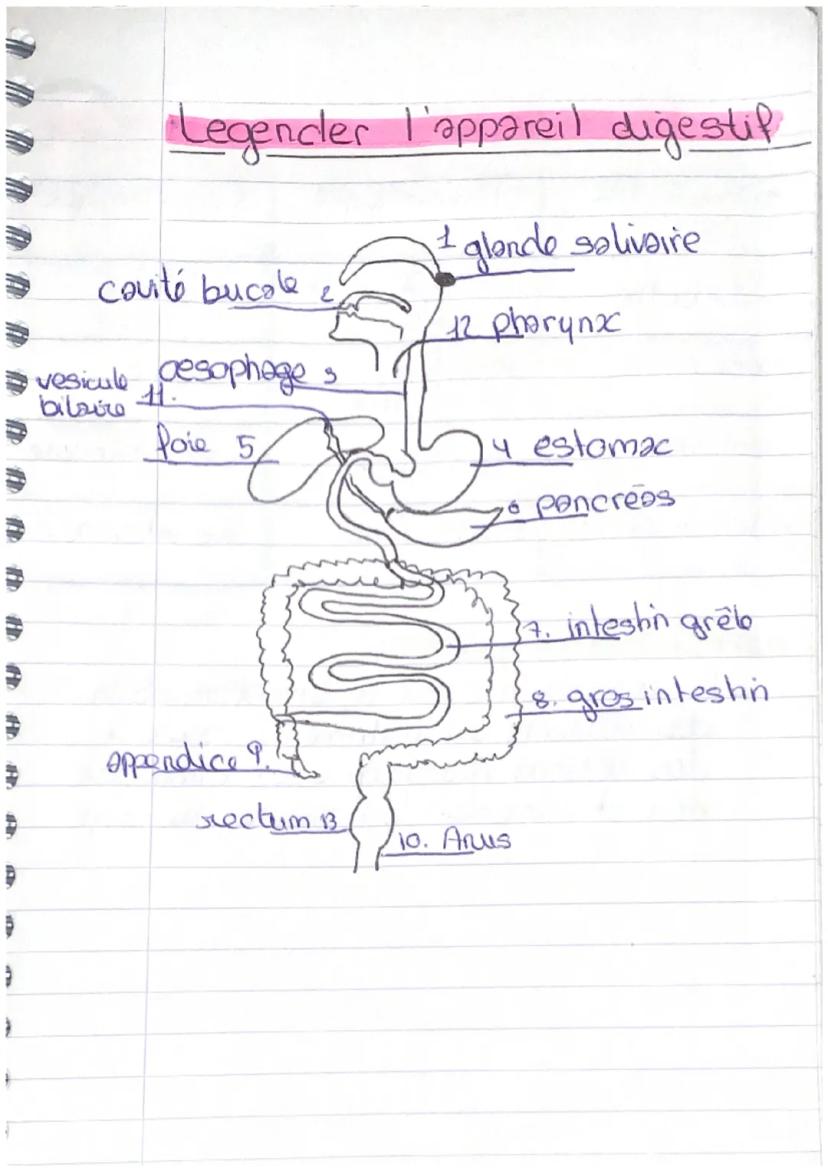 Legender l'appareil digestif
1 glande salivaire
cavité bucale 2
12 pharynx
oesophage 3
vesicule
bilaire 11.
foie 5
4 estomac
6 pancréas
7. intestin grêle
8. gros intestin
appendice 9.
rectum 13
10. Anus